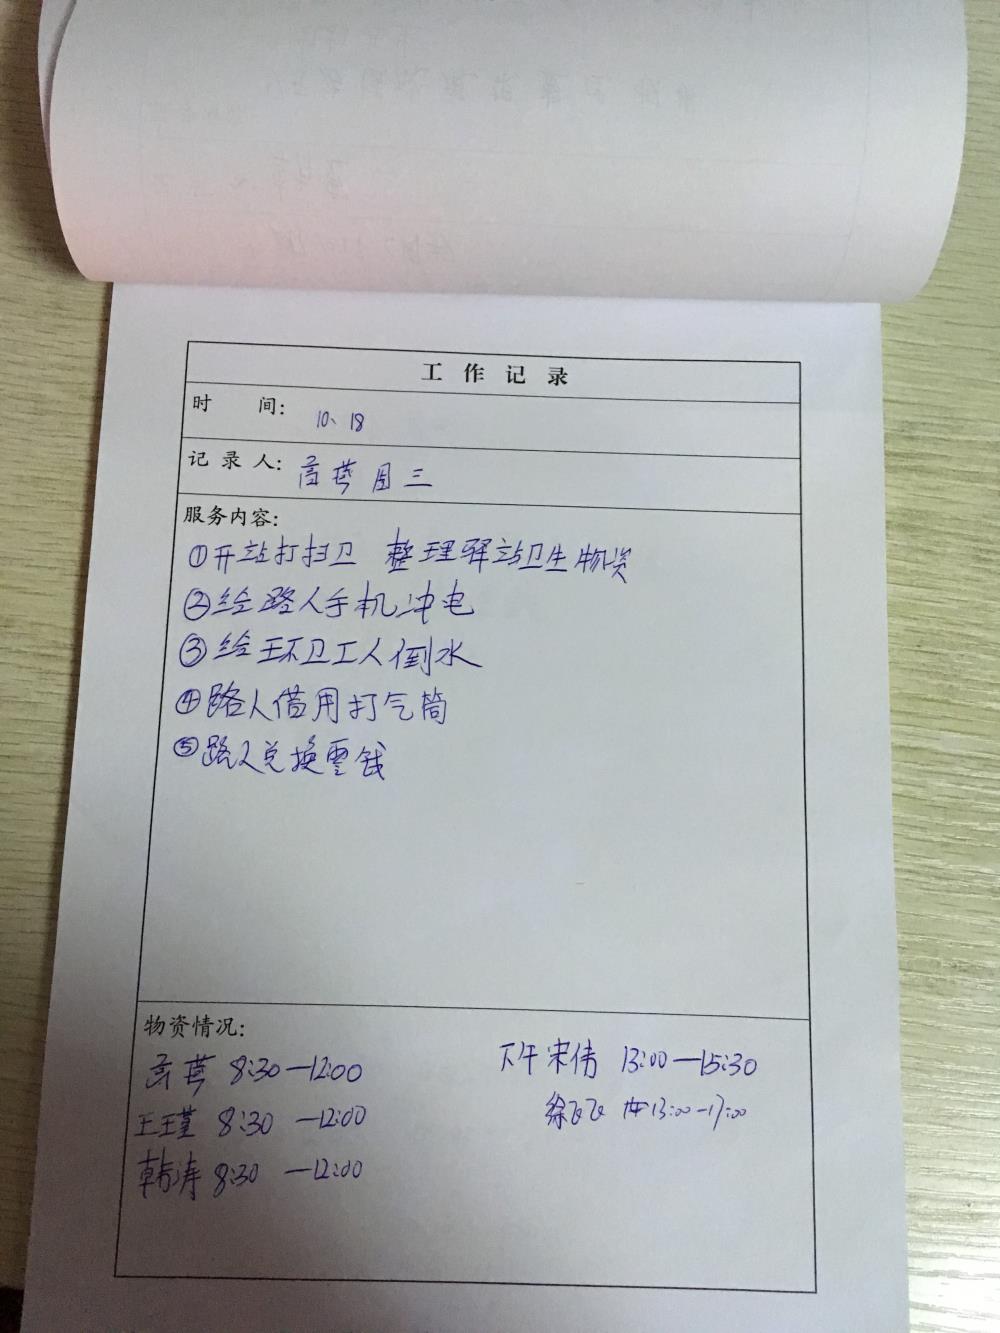 工作记录
时 间: 10、18
记录人: 高燕 周三
服务内容:
①开站打扫卫 整理驿站卫生物资
②给路人手机冲电
③给环卫工人倒水
④路人借用打气筒
⑤路人兑换零钱
物资情况:
高燕 8:30—12:00
王瑾 8:30—12:00
韩涛 8:30—12:00
下午宋伟 13:00—15:30
徐飞飞 13:00—17:00